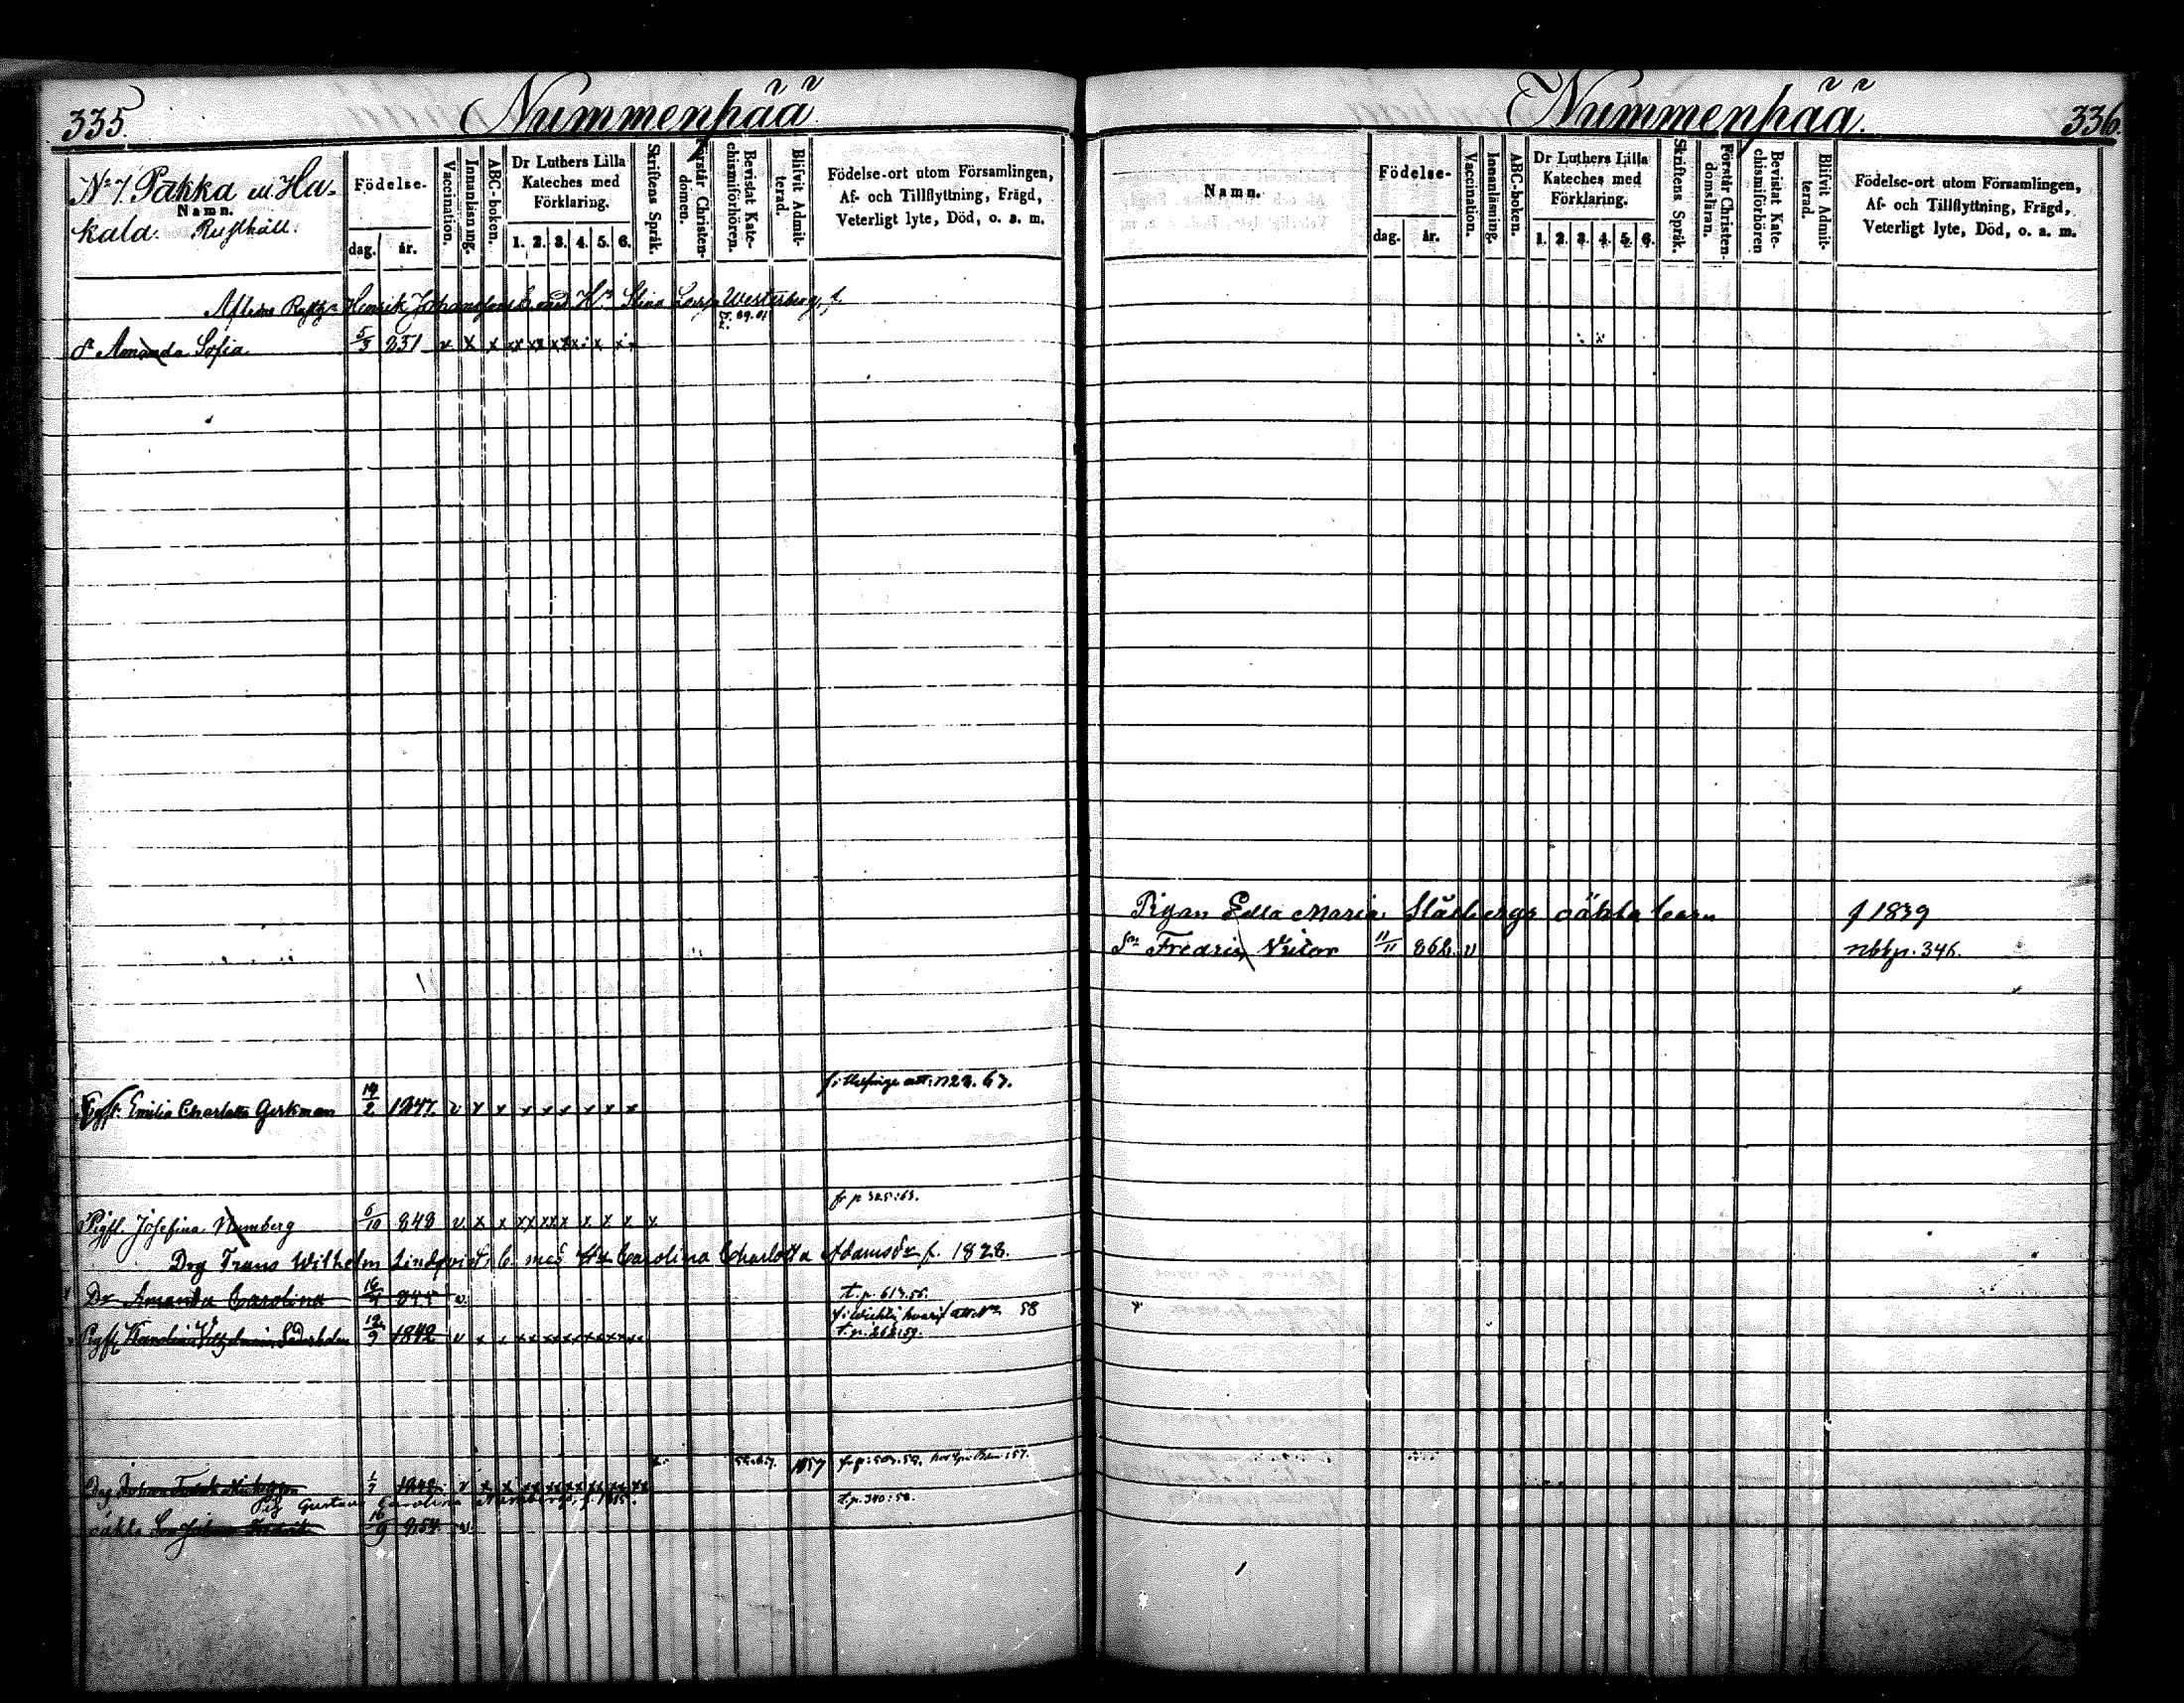 335.
Nummenpää
N:o 7. Pakka ell. Ha-
kala. Rusthåll.
Namn.
Födelse-
dag. år.
Vaccination.
Innanläsning.
ABC-boken.
Dr Luthers Lilla
Kateches med
Förklaring.
1. 2. 3. 4. 5. 6.
Skriftens Språk.
Förstår Christen-
domen.
Bevistat Kate-
chismiförhören.
Blifvit Admit-
terad.
Födelse-ort utom Församlingen,
Af- och Tillflyttning, Frägd,
Veterligt lyte, Död, o. s. m.
Henrik Johansson med H. Stina Westerberg, f.
Dr Amanda Sofia 5/3 851 v x x xx xx xx x x x
67.
Pigfl. Emilia Charlotta Gerkman 14/2 1847. v x x x x x x x x
fr p 325:63.
Pigfl. Josefina Numberg 6/10 848 v. x x xx xx x x x x x
Drg Frans Wilhelm Lindqvist b. med Carolina Charlotta Adamsdr f. 1828.
Dr Amanda Carolina 16/ 844 v. t. p. 613.56.
58
Pigfl. Karolina Vilhelmina 12/9 1842 v x x xx xx xx xx xx xx t. p. 262:59.
1857
Drg Johan 1842 v x x xx xx xx xx xx xx
Pig. Gustava Carolina
oäkta Son Johan Fredrik 16/9 854. v. t. p. 340:58.
Nummenpää.
336.
Namn.
Födelse-
dag. år.
Vaccination.
Innanläsning.
ABC-boken.
Dr Luthers Lilla
Kateches med
Förklaring.
1. 2. 3. 4. 5. 6.
Skriftens Språk.
Förstår Christen-
domsläran.
Bevistat Kate-
chismiförhören
Blifvit Admit-
terad.
Födelse-ort utom Församlingen,
Af- och Tillflyttning, Frägd,
Veterligt lyte, Död, o. a. m.
Pigan Edla Maria oäkta barn f 1839
Sn Fredric Victor 11/11 862. v nbkp. 346.